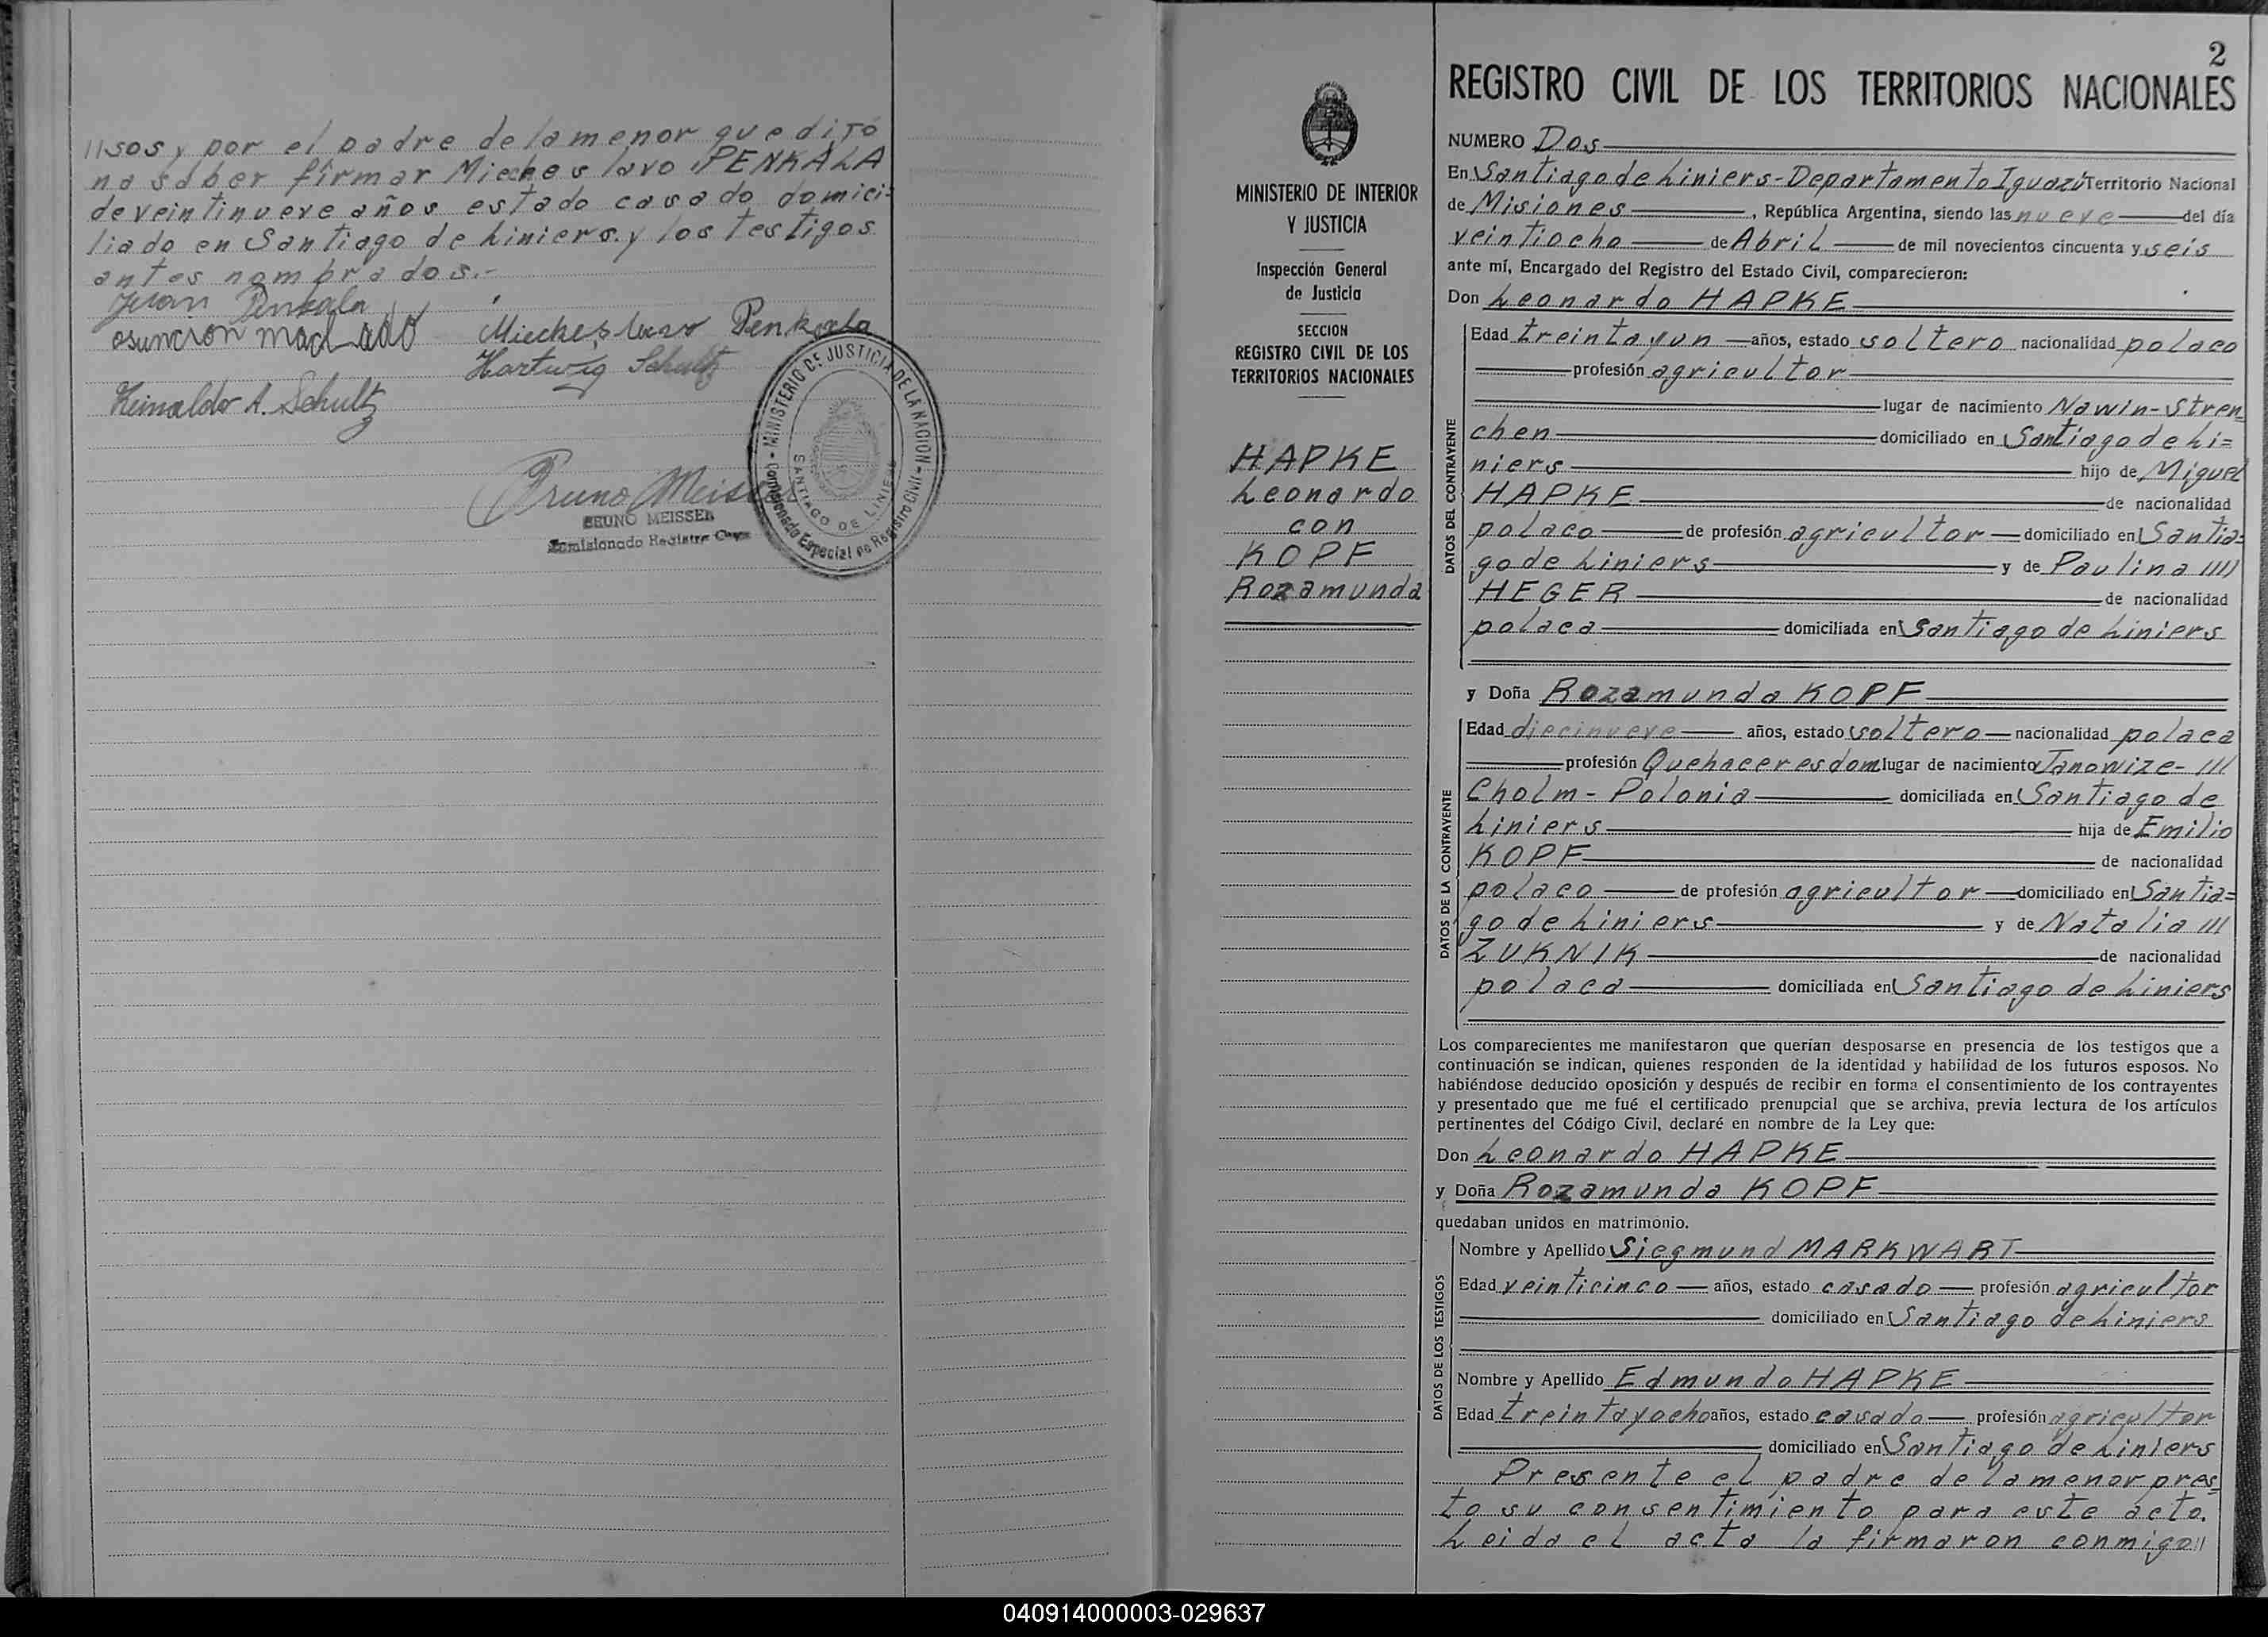 llsos y por el padre de la menor que dijo
no saber firmar Miecheslavo PENKALA
de veintinueve años estado casado domici-
liado en Santiago de Liniers y los testigos
antes nombrados.-
Juan Penkala
asuncion machado
Miecheslavo Penkala
Hartwig Schultz
Reinaldo A. Schultz
Bruno Meisser
BRUNO MEISSER
Comisionado Registro Civil
MINISTERIO DE JUSTICIA DE LA NACION
Comisionado Especial de Registro Civil
SANTIAGO DE LINIERS
MINISTERIO DE INTERIOR
Y JUSTICIA
Inspección General
de Justicia
SECCION
REGISTRO CIVIL DE LOS
TERRITORIOS NACIONALES
HAPKE
Leonardo
con
KOPF
Rozamunda
2
REGISTRO CIVIL DE LOS TERRITORIOS NACIONALES
NUMERO Dos
En Santiago de Liniers-Departamento Iguazú Territorio Nacional
de Misiones, República Argentina, siendo las nueve del día
veintiocho de Abril de mil novecientos cincuenta y seis
ante mí, Encargado del Registro del Estado Civil, comparecieron:
Don Leonardo HAPKE
DATOS DEL CONTRAYENTE
Edad treinta y un años, estado soltero nacionalidad polaco
profesión agricultor
lugar de nacimiento Nawin-Stren=
chen domiciliado en Santiago de Li=
niers hijo de Miguel
HAPKE de nacionalidad
polaco de profesión agricultor domiciliado en Santia=
go de Liniers y de Paulina IIII
HEGER de nacionalidad
polaca domiciliada en Santiago de Liniers
y Doña Rozamunda KOPF
DATOS DE LA CONTRAYENTE
Edad diecinueve años, estado soltero nacionalidad polaca
profesión Quehaceres dom lugar de nacimiento Janowize- III
Cholm-Polonia domiciliada en Santiago de
Liniers hija de Emilio
KOPF de nacionalidad
polaco de profesión agricultor domiciliado en Santia=
go de Liniers y de Natalia III
ZUKNIK de nacionalidad
polaca domiciliada en Santiago de Liniers
Los comparecientes me manifestaron que querían desposarse en presencia de los testigos que a
continuación se indican, quienes responden de la identidad y habilidad de los futuros esposos. No
habiéndose deducido oposición y después de recibir en forma el consentimiento de los contrayentes
y presentado que me fué el certificado prenupcial que se archiva, previa lectura de los artículos
pertinentes del Código Civil, declaré en nombre de la Ley que:
Don Leonardo HAPKE
y Doña Rozamunda KOPF
quedaban unidos en matrimonio.
DATOS DE LOS TESTIGOS
Nombre y Apellido Siegmund MARKWART
Edad veinticinco años, estado casado profesión agricultor
domiciliado en Santiago de Liniers
Nombre y Apellido Edmundo HAPKE
Edad treinta y ocho años, estado casado profesión agricultor
domiciliado en Santiago de Liniers
Presente el padre de la menor pres=
to su consentimiento para este acto.
Leida el acta la firmaron conmigo II
040914000003-029637